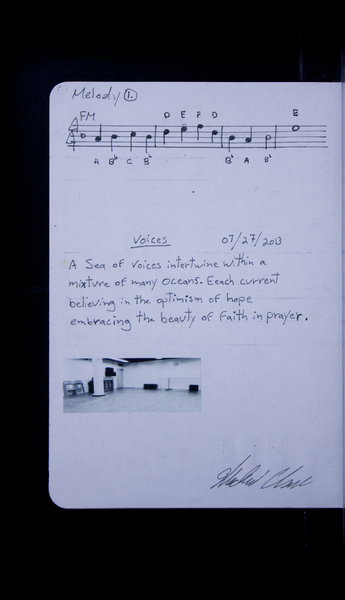 Melody 1.
FM
D E F D E
A B♭ C B♭ B♭ A B♭
Voices 07/27/2013
A Sea of Voices intertwine within a
mixture of many oceans. Eeach current
believing in the optimism of hope
embracing the beauty of Faith in prayer.